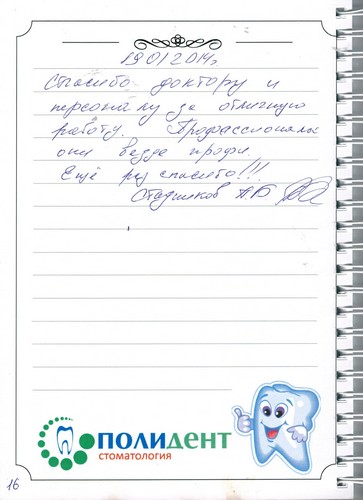 19.01.2014г
Спасибо доктору и
персоналу за отличную
работу. Профессионалы
они везде профи.
Ещё раз спасибо!!!
Стадников А.В
ПОЛИДЕНТ
СТОМАТОЛОГИЯ
16